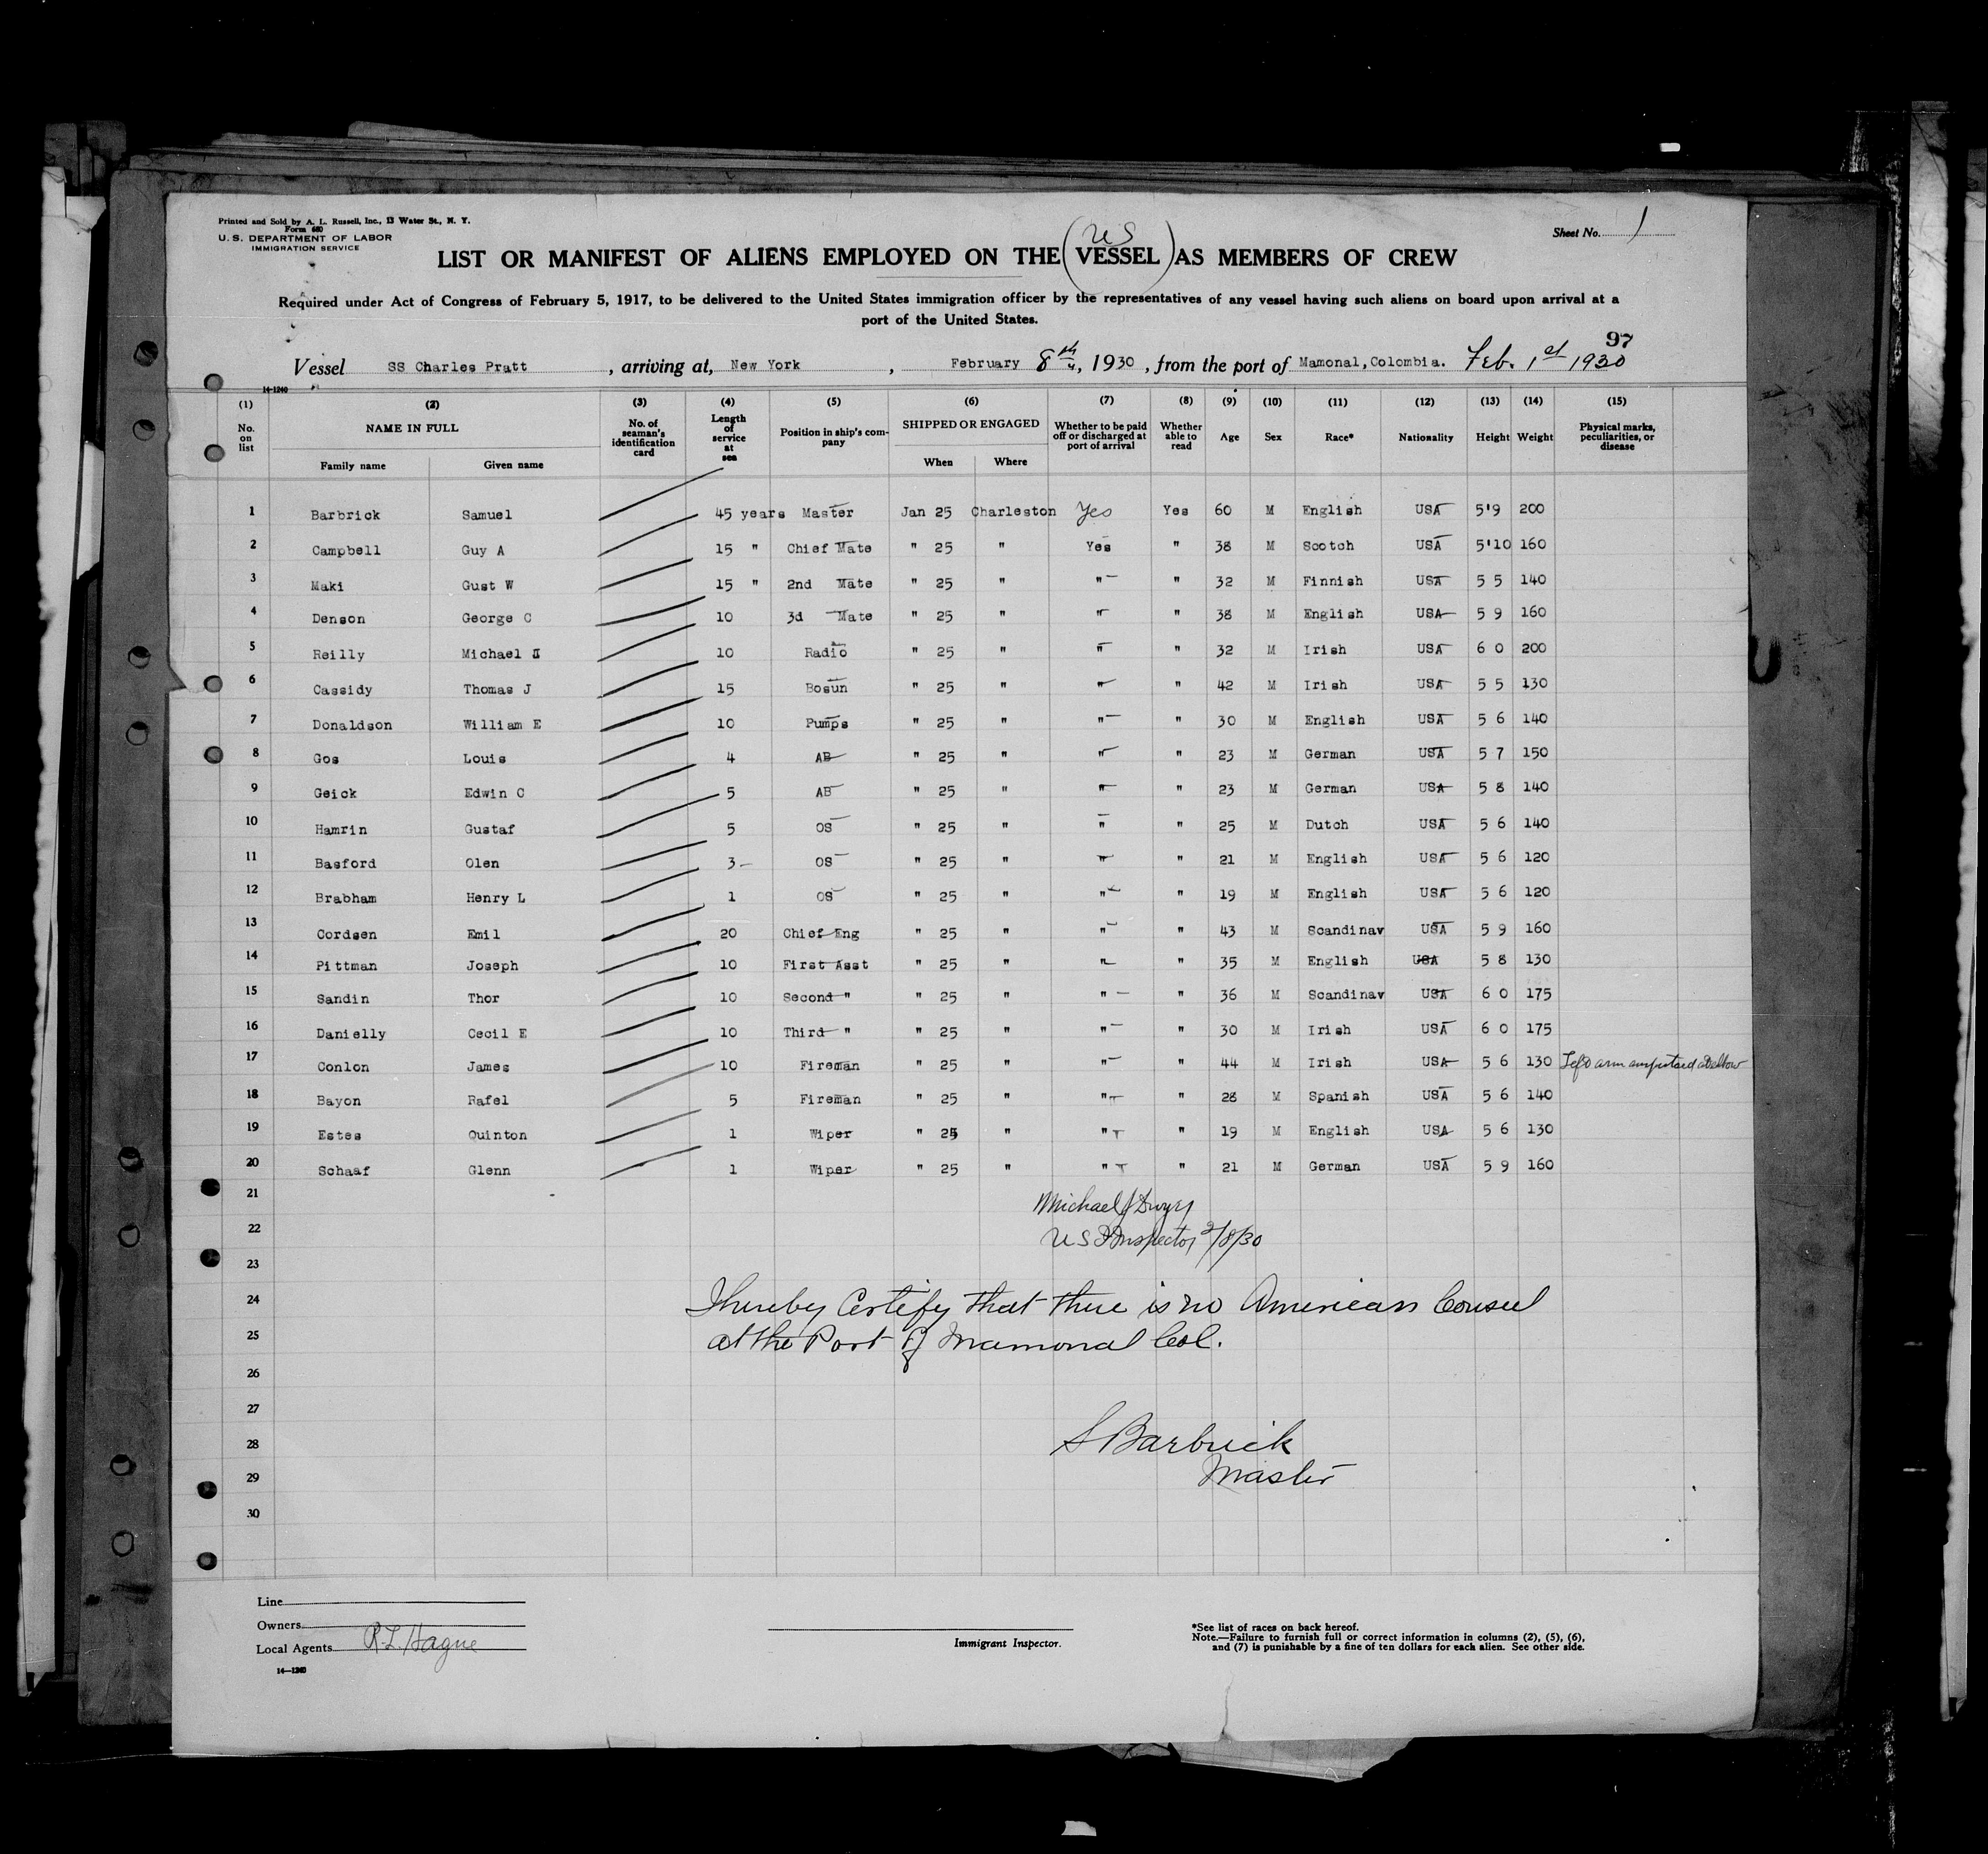 Printed and Sold by A. L. Russell, Inc., 13 Water St., N. Y.
Form 680
U. S. DEPARTMENT OF LABOR
IMMIGRATION SERVICE
Sheet No. 1
US
LIST OR MANIFEST OF ALIENS EMPLOYED ON THE (VESSEL) AS MEMBERS OF CREW
Required under Act of Congress of February 5, 1917, to be delivered to the United States immigration officer by the representatives of any vessel having such aliens on board upon arrival at a
port of the United States.
97
Vessel SS Charles Pratt, arriving at, New York, February 8th, 1930, from the port of Mamonal, Colombia. Feb. 1st 1930
14-1240
(1) (2) (3) (4) (5) (6) (7) (8) (9) (10) (11) (12) (13) (14) (15)
No. on list NAME IN FULL No. of seaman's identification card Length of service at sea Position in ship's company SHIPPED OR ENGAGED Whether to be paid off or discharged at port of arrival Whether able to read Age Sex Race* Nationality Height Weight Physical marks, peculiarities, or disease
Family name Given name When Where
1 Barbrick Samuel 45 years Master Jan 25 Charleston Yes Yes 60 M English USA 5'9 200
2 Campbell Guy A 15 " Chief Mate " 25 " Yes " 38 M Scotch USA 5'10 160
3 Maki Gust W 15 " 2nd Mate " 25 " " " 32 M Finnish USA 5 5 140
4 Denson George C 10 3d Mate " 25 " " " 38 M English USA 5 9 160
5 Reilly Michael 10 Radio " 25 " " " 32 M Irish USA 6 0 200
6 Cassidy Thomas J 15 Bosun " 25 " " " 42 M Irish USA 5 5 130
7 Donaldson William E 10 Pumps " 25 " " " 30 M English USA 5 6 140
8 Gos Louis 4 AB " 25 " " " 23 M German USA 5 7 150
9 Geick Edwin C 5 AB " 25 " " " 23 M German USA 5 8 140
10 Hamrin Gustaf 5 OS " 25 " " " 25 M Dutch USA 5 6 140
11 Basford Olen 3 OS " 25 " " " 21 M English USA 5 6 120
12 Brabham Henry L 1 OS " 25 " " " 19 M English USA 5 6 120
13 Cordsen Emil 20 Chief Eng " 25 " " " 43 M Scandinav USA 5 9 160
14 Pittman Joseph 10 First Asst " 25 " " " 35 M English USA 5 8 130
15 Sandin Thor 10 Second " " 25 " " " 36 M Scandinav USA 6 0 175
16 Danielly Cecil E 10 Third " " 25 " " " 30 M Irish USA 6 0 175
17 Conlon James 10 Fireman " 25 " " " 44 M Irish USA 5 6 130 Left arm amputaed at elbow
18 Bayon Rafel 5 Fireman " 25 " " " 28 M Spanish USA 5 6 140
19 Estes Quinton 1 Wiper " 25 " " " 19 M English USA 5 6 130
20 Schaaf Glenn 1 Wiper " 25 " " " 21 M German USA 5 9 160
21 Michael J Dwyer
22 US I Inspector 2/8/30
23
24 I hereby Certify that there is no American Consul
25 at the Port of Mamonal Col.
26
27
28 S Barbrick
29 Master
30
Line
Owners
Local Agents R. L. Hague
14—1240
Immigrant Inspector.
*See list of races on back hereof.
Note.—Failure to furnish full or correct information in columns (2), (5), (6),
and (7) is punishable by a fine of ten dollars for each alien. See other side.